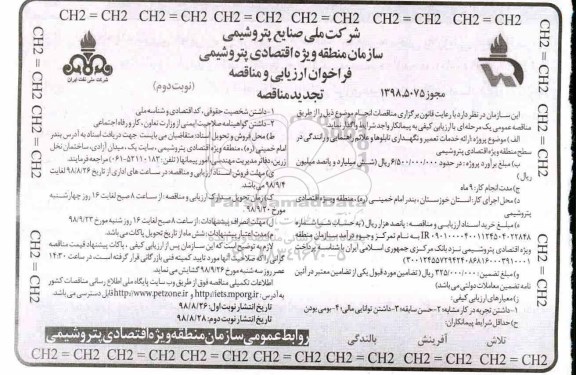 CH2 = CH2 = CH2 = CH2 = CH2 = CH2 = CH2 = CH2 = CH2
شرکت ملی صنایع پتروشیمی
سازمان منطقه ویژه اقتصادی پتروشیمی
فراخوان ارزیابی و مناقصه
(نوبت دوم)
تجدید مناقصه
مجوز ۱۳۹۸.۵۰۷۵
شرکت ملی نفت ایران
این سازمان در نظر دارد با رعایت قانون برگزاری مناقصات انجام موضوع ذیل را از طریق
مناقصه عمومی یک مرحله‌ای با ارزیابی کیفی به پیمانکار واجد شرایط واگذار نماید.
الف) موضوع پروژه: ارائه خدمات تعمیر و نگهداری تابلوها و علائم راهنمایی و رانندگی در
سطح منطقه ویژه اقتصادی پتروشیمی
ب) مبلغ برآورد پروژه: در حدود ۶/۵۰۰/۰۰۰/۰۰۰ ریال (شش میلیارد و پانصد میلیون
ریال)
ج) مدت انجام کار: ۹ ماه
د) محل اجرای کار: استان خوزستان، بندر امام خمینی (ره)، منطقه ویژه اقتصادی
پتروشیمی
ه) مبلغ خرید اسناد ارزیابی و مناقصه: پانصد هزار ریال (به حساب شبا شماره
به نام تمرکز وجوه درآمد سازمان منطقه
ویژه اقتصادی پتروشیمی نزد بانک مرکزی جمهوری اسلامی ایران با شناسه پرداخت
و) مبلغ تضمین: ۳۲۵/۰۰۰/۰۰۰ ریال (تضامین مورد قبول یکی از تضامین معتبر در آئین
نامه تضمین معاملات دولتی می‌باشد)
ز) معیارهای ارزیابی کیفی:
۱- داشتن تجربه در کار مشابه؛ ۲- حسن سابقه؛ ۳- داشتن توانایی مالی؛ ۴- بومی بودن
ح) حداقل شرایط پیمانکاران:
تلاش آفرینش بالندگی
۱- داشتن شخصیت حقوقی، کد اقتصادی و شناسه ملی
۲- داشتن گواهینامه صلاحیت ایمنی از وزارت تعاون، کار و رفاه اجتماعی
ط) محل فروش و تحویل اسناد: متقاضیان می بایست جهت دریافت اسناد به آدرس بندر
امام خمینی (ره)، منطقه ویژه اقتصادی پتروشیمی، سایت یک، میدان آزادی، ساختمان نخل
زرین، دفاتر مدیریت مهندسی/امور پیمانها (تلفن: ۵۲۱۱۰۱۸۳-۰۶۱) مراجعه فرمایند.
ی) مهلت فروش اسناد ارزیابی و مناقصه: در ساعت های اداری از تاریخ ۹۸/۸/۲۶ لغایت
۹۸/۹/۴ می باشد.
ک) زمان تحویل و مناقصه: از ساعت ۸ صبح لغایت ۱۶ روز چهارشنبه
مورخ ۹۸/۹/۲۰
ل) مهلت انصراف پیشنهادات: از ساعت ۸ صبح لغایت ۱۶ روز شنبه مورخ ۹۸/۹/۲۳
م) مدت اعتبار پیشنهادات: شش ماه از تاریخ تحویل پاکات می باشد.
لازم به توضیح است که این سازمان پس از ارزیابی کیفی، پاکات پیشنهاد قیمت مناقصه
گرانی که صلاحیت آنها مورد تایید کمیته فنی بازرگانی قرار گرفته است، در ساعت ۱۴:۳۰
عصر روز سه شنبه مورخ ۹۸/۹/۲۶ گشایش می نماید.
اطلاعات تکمیلی مناقصه فوق از طریق وب سایت پایگاه ملی اطلاع رسانی مناقصات کشور
به آدرس http://iets.mporg.ir و http://www.petzone.ir قابل دسترسی می باشد.
تاریخ انتشار نوبت اول: ۹۸/۸/۲۶
تاریخ انتشار نوبت دوم: ۹۸/۸/۲۸
روابط عمومی سازمان منطقه ویژه اقتصادی پتروشیمی
CH2 = CH2 = CH2 = CH2 = CH2 = CH2 = CH2 = CH2 = CH2